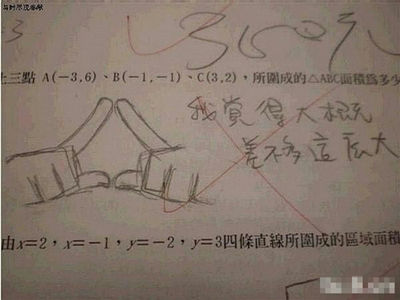 上三點 A(−3,6)、B(−1,−1)、C(3,2),所圍成的△ABC面積為多少
我覺得大概
差不多這么大
由x=2,x=−1,y=−2,y=3四條直線所圍成的區域面積